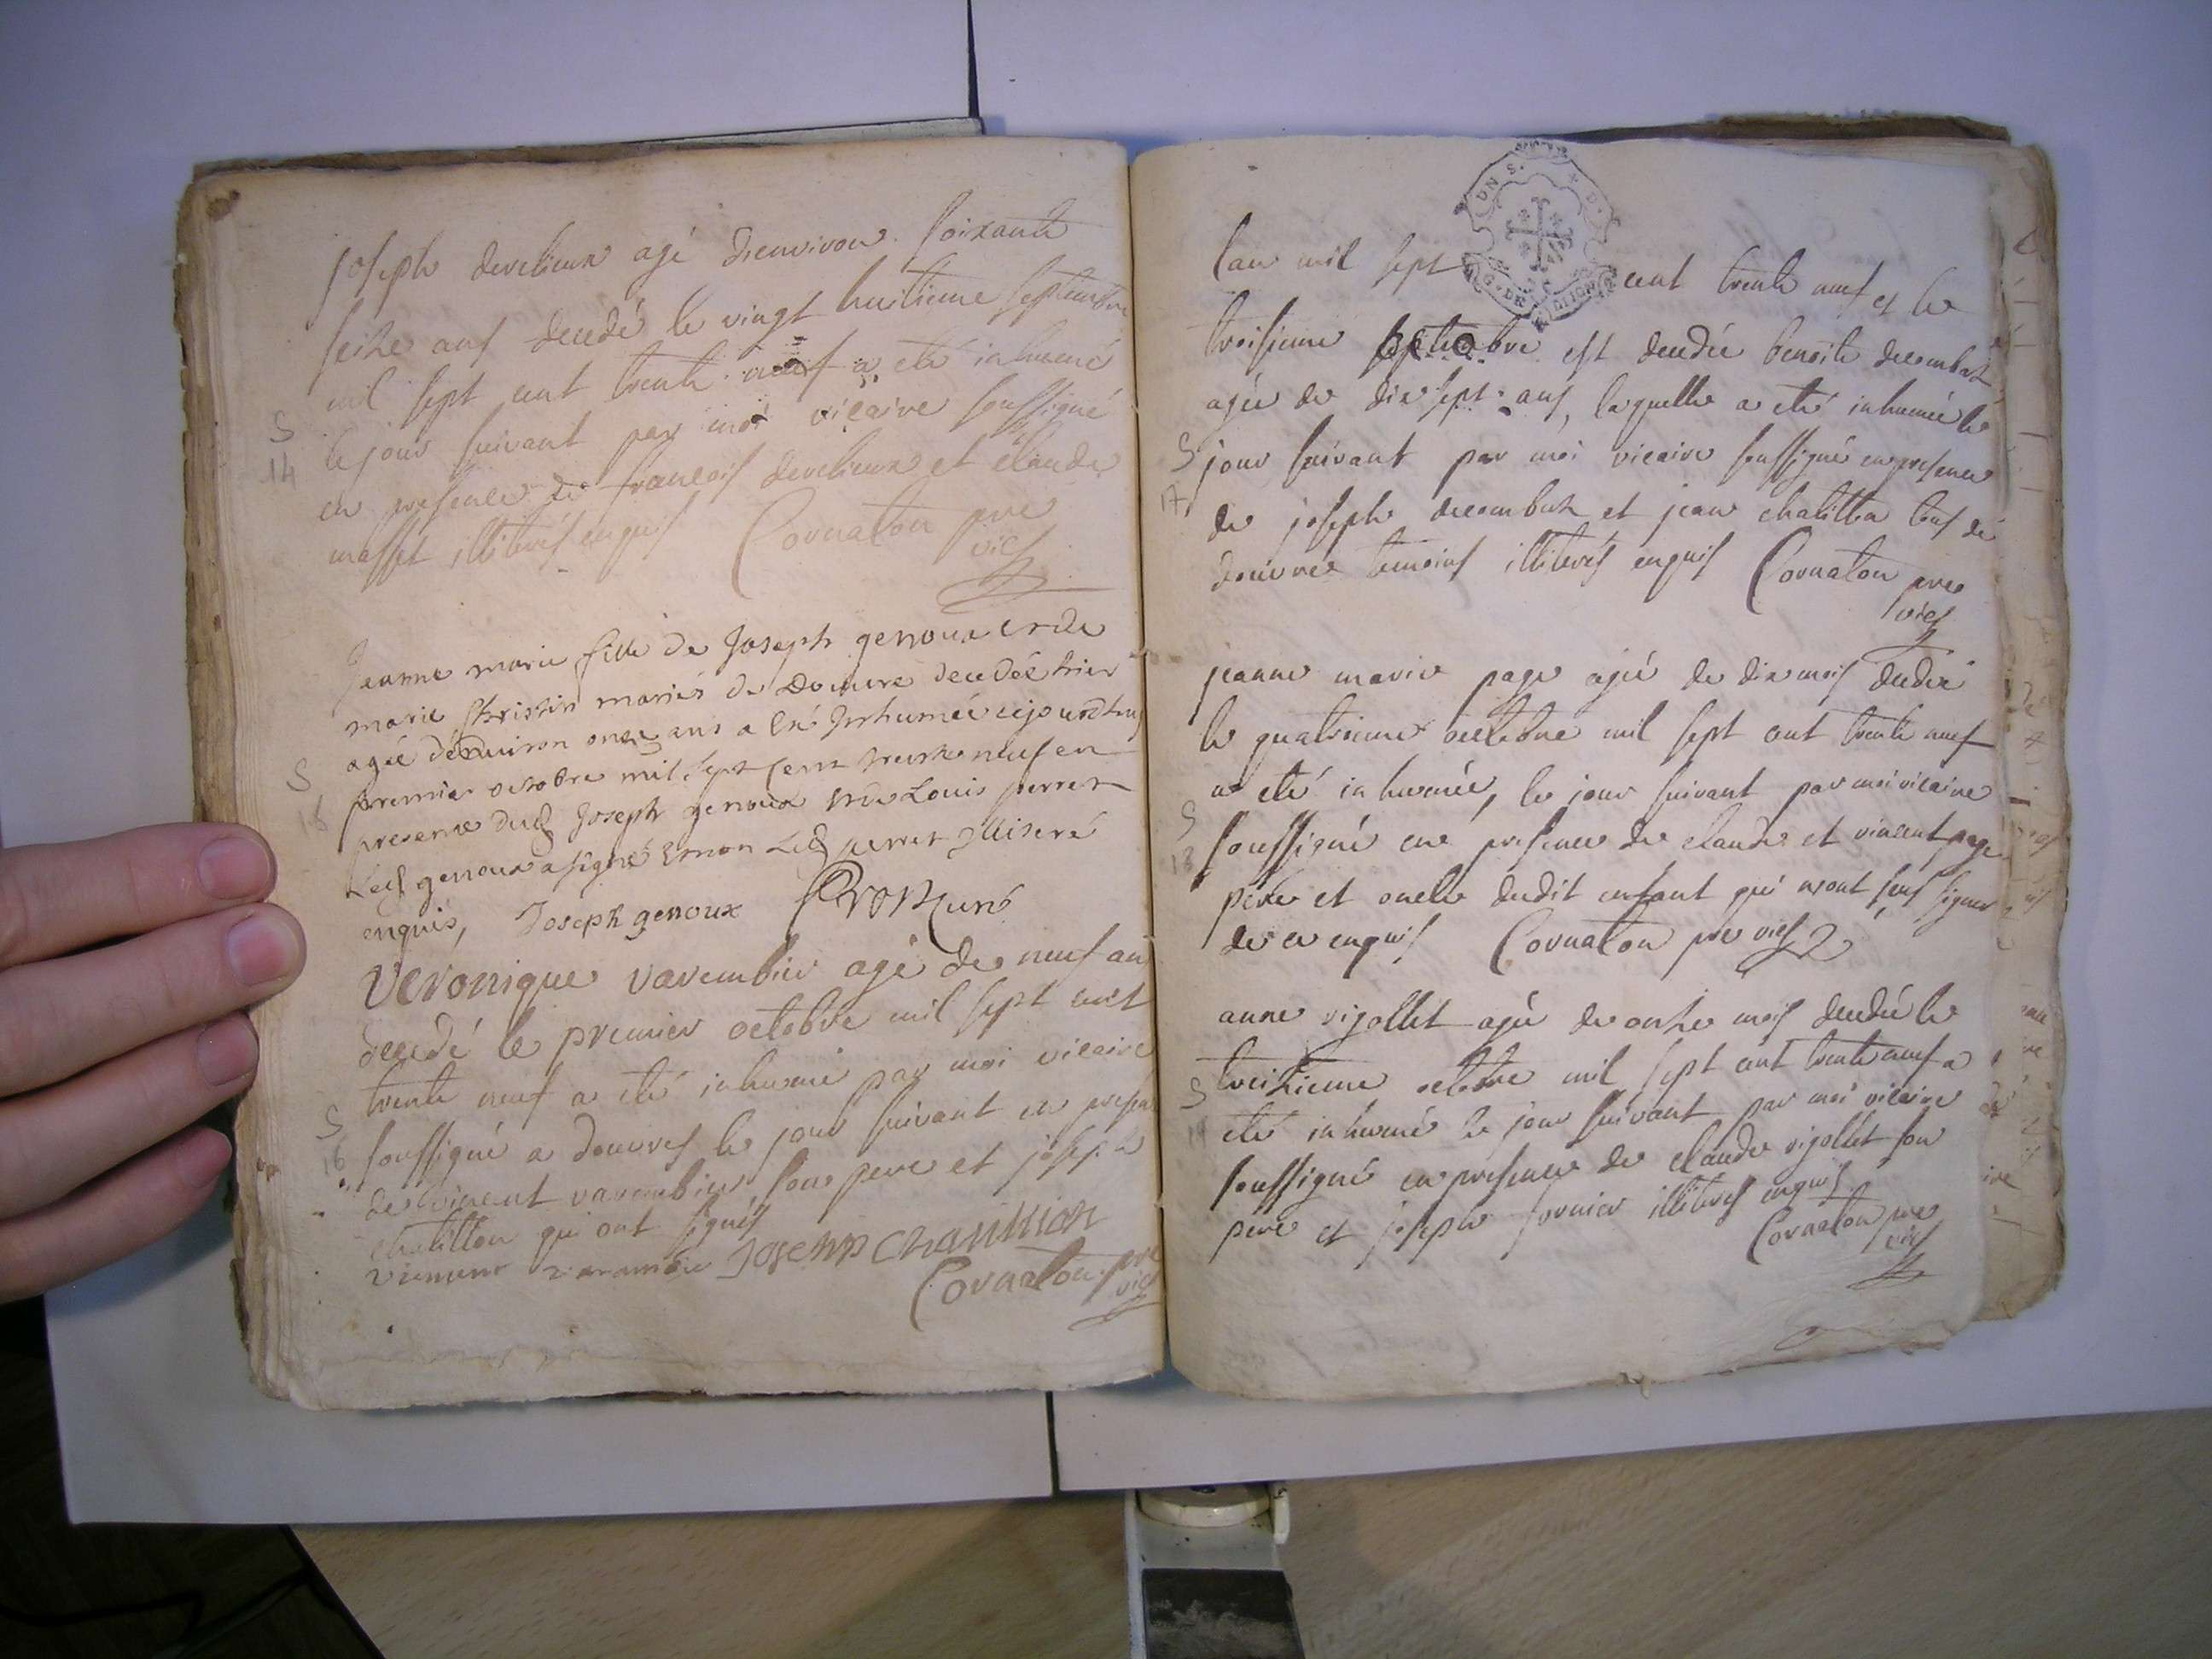 joseph develieux agé denviron soixante
seize ans decedé le vingt huitieme septembre
mil sept cent trente neuf a eté inhumé
le jour suivant par moi vicaire soussigné
S
14
en presence de francois develieux et claude
masset illiterés enquis Cornaton pre
vic
Jeanne marie fille de Joseph genoux et de
marie Christin mariés de Douvre decedée hier
agée d'environ onze ans a été Inhumée ce jourdhuy
S
15
premier octobre mil sept cent trente neuf en
presence dud Joseph genoux et de Louis perret
Led genoux a signé et non Led perret Illiteré
enquis, Joseph genoux curé
Veronique varembier agé de neuf an
decedé le premier octobre mil sept cent
trente neuf a eté inhumé par moi vicaire
S
16
soussigné a douvres le jour suivant en presen
de vincent varembier son pere et joseph
chatillon qui ont signés
varambie Joseph Chatillion
Cornaton pre
vic
lan mil sept cent trente neuf et le
troisieme octobre est decedée benoite decombat
agée de dix sept ans, laquelle a eté inhumée le
S
17
jour suivant par moi vicaire soussigné en presence
de joseph decombat et jean chatillon tous de
douvre temoins illiterés enquis Cornaton pre
vic
jeanne marie page agée de dix mois decedée
le quatrieme octobre mil sept cent trente neuf
a eté inhumée, le jour suivant par moi vicaire
S
18
soussigné en presence de claude et vincent page
pere et oncle dudit enfant qui nont sus signer
de ce enquis Cornaton pre vic
anne rigollet agée de onze mois decedée le
S
19
treizieme octobre mil sept cent trente neuf a
eté inhumé le jour suivant par moi vicaire
soussigné en presence de claude rigollet son
pere et joseph fornier illiterés enquis
Cornaton pre
vic